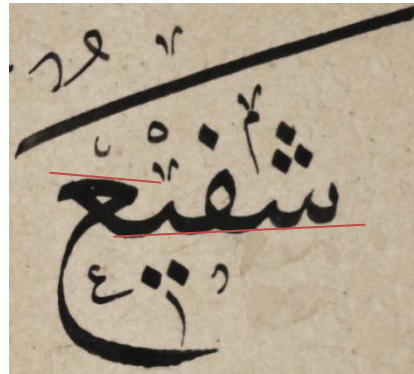 شفيع